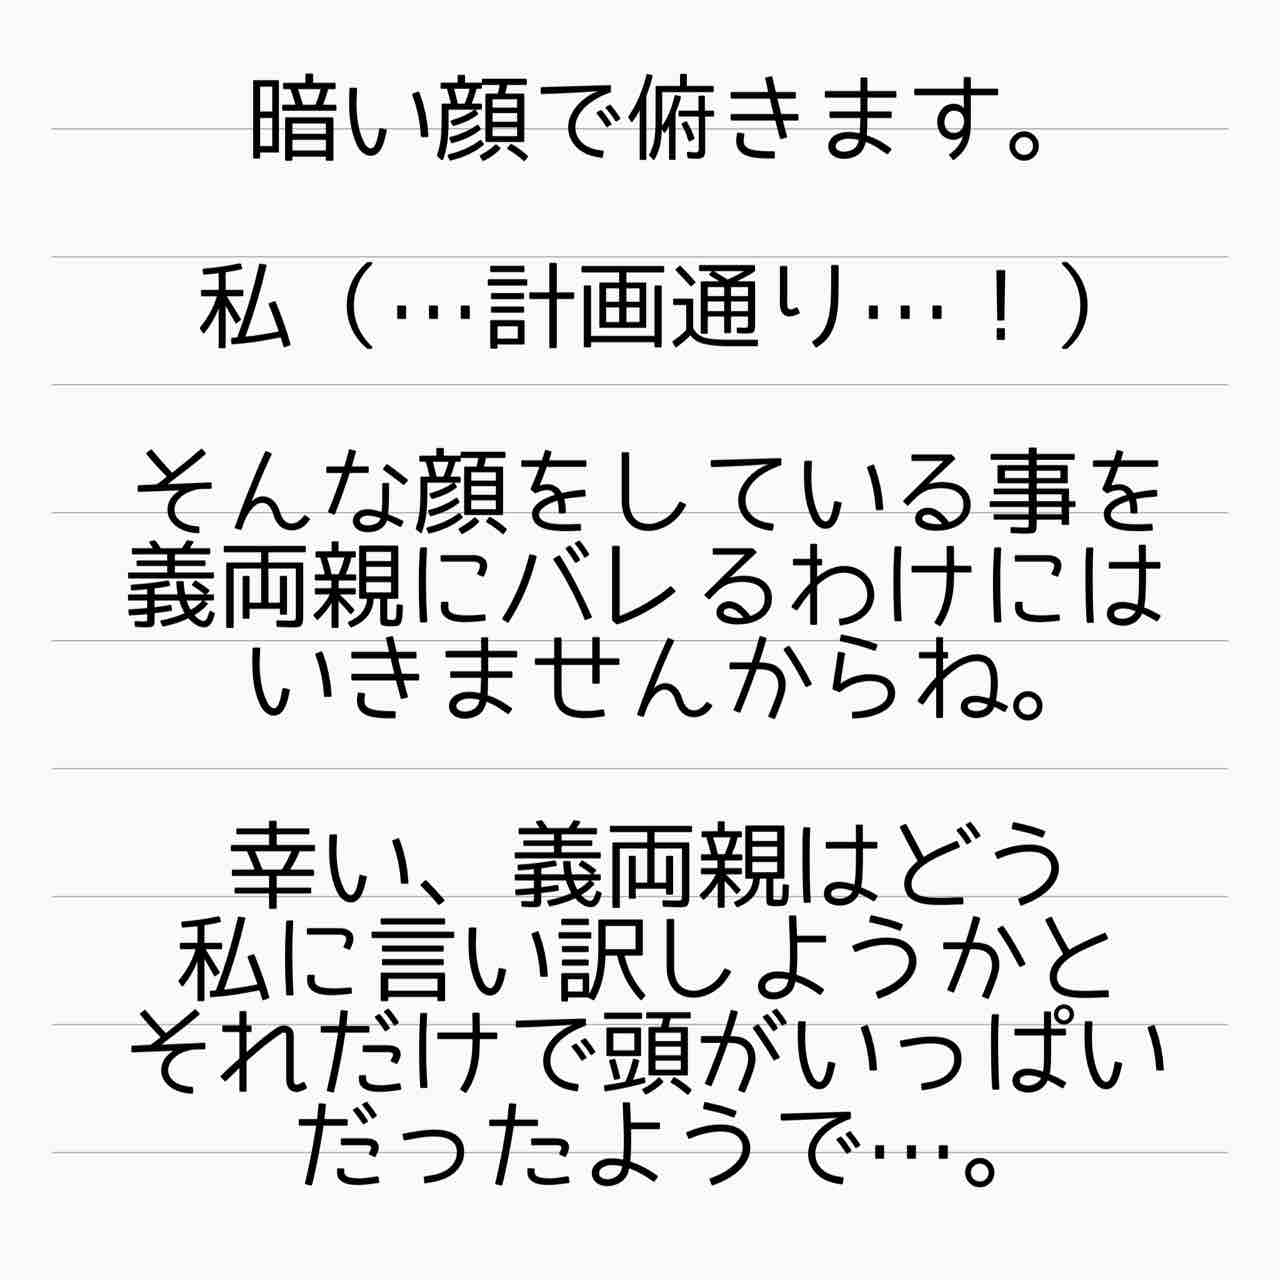 暗い顔で俯きます。
私（…計画通り…！）
そんな顔をしている事を
義両親にバレるわけには
いきませんからね。
幸い、義両親はどう
私に言い訳しようかと
それだけで頭がいっぱい
だったようで…。